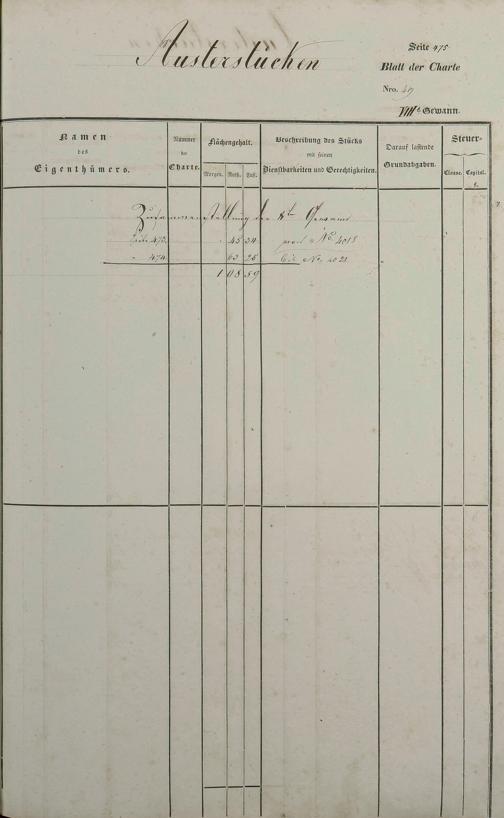 Austerstücken
Seite 475
Blatt der Charte
Nro. 49
VIIIte Gewann.
Namen
des
Eigenthümers.
Nummer
der
Charte.
Flächengehalt.
Morgen. Ruth. Fuß.
Beschreibung des Stücks
mit seinen
Dienstbarkeiten und Gerechtigkeiten.
Darauf lastende
Grundabgaben.
Steuer-
Classe. Capital.
Zusammenstellung der 8ten Gewann
Seite 473. 45 34 No. 4018
" 474. 63 25 bis No. 4021
1 08 59